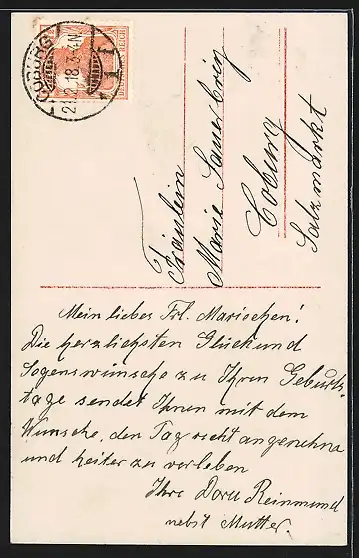 COBURG
21.2.18.3-4N.
1
Fräulein
Marie Sauerbrey
Coburg
Salzmarkt
Mein liebes Frl. Mariechen!
Die herzlichsten Glück und
Segenswünsche zu Ihren Geburts-
tage sendet Ihnen mit dem
Wunsche, den Tag recht angenehm
und heiter zu verleben
Ihre Dora Reinmund
nebst Mutter.